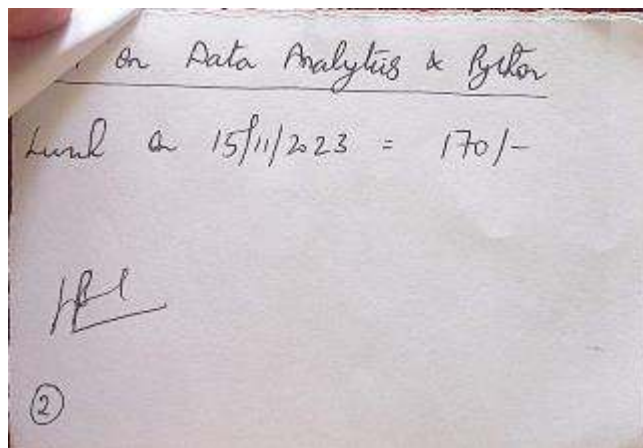 on Data Analytics & Python
Lunch on 15/11/2023 = 170/-
2